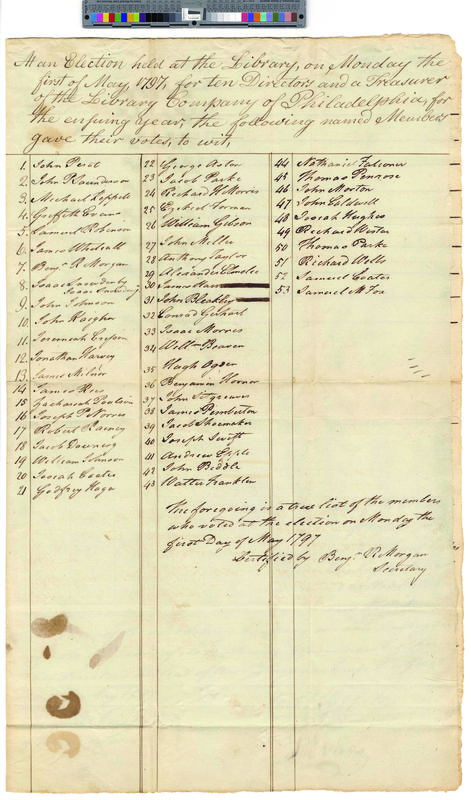 At an Election held at the Library, on Monday the
first of May, 1797, for ten Directors and a Treasurer
of the Library Company of Philadelphia, for
the ensuing year, the following named Members
gave their votes, to wit,
1. John Perot
2. John Kaunderson
3. Michael Keppele
4. Griffith Evans
5. Samuel Robinson
6. James Whitall
7. Benjn. R Morgan
8. Isaac Snowden by
Isaac Snowden Jr
9. John Johnson
10. John Kaighn
11. Jeremiah Cresson
12. Jonathan Harvey
13. James Milnor
14. James Rees
15. Zachariah Poulson
16. Joseph P Norris
17. Robert Rainey
18. Jacob Downing
19. William Johnson
20. Josiah Coates
21. Godfrey Haga
22. George Aston
23. Jacob Parke
24. Richard H. Morris
25. Ezekiel Forman
26. William Gibson
27. John Miller
28. Anthony Taylor
29. Alexander
30. James
31. John Bleakley
32. Conrad Gerhart
33. Isaac Morris
34. Willm Beaven
35. Hugh Ogden
36. Benjamin Horner
37. John Sitgreaves
38. James Pemberton
39. Jacob Shoemaker
40. Joseph Swift
41. Andrew Epple
42. John Biddle
43. Walter Franklin
44. Nathaniel Falconer
45. Thomas Penrose
46. John Morton
47. John Caldwell
48. Josiah Hughes
49. Richard Wister
50. Thomas Parke
51. Richard Wells
52. Samuel Coates
53. Samuel M. Fox
The foregoing is a true list of the members
who voted at the election on Monday the
first Day of May 1797
Certified by Benjn. R Morgan
Secretary